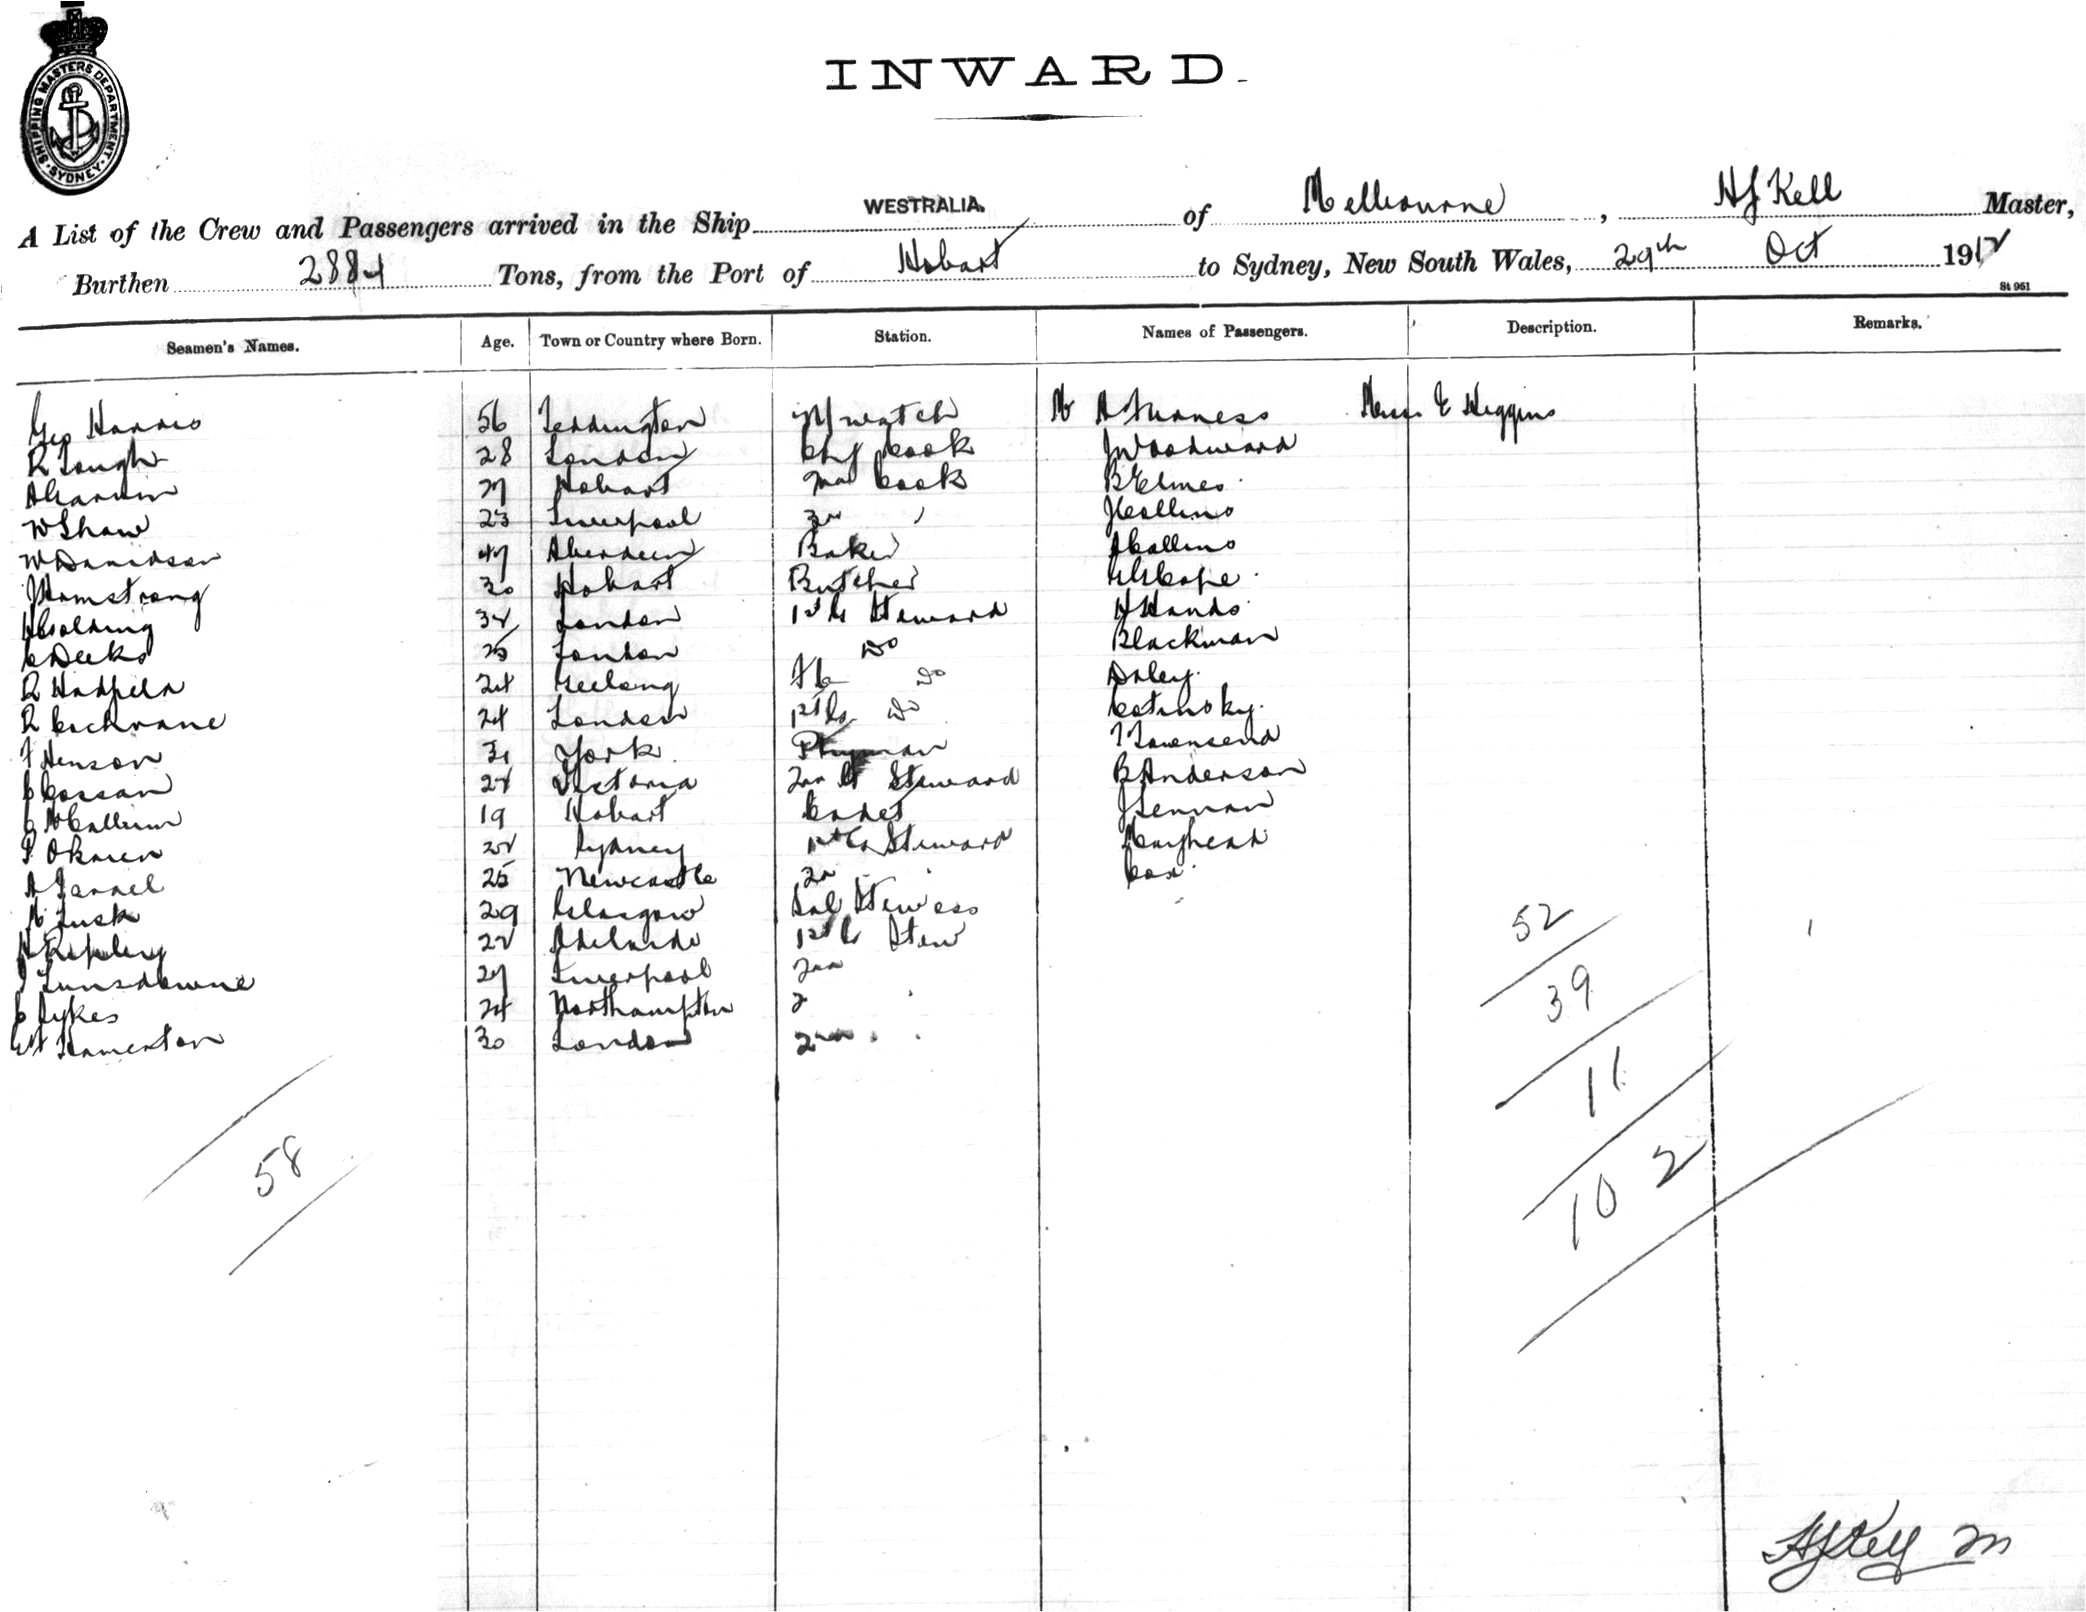 SHIPPING MASTERS DEPARTMENT · SYDNEY ·
INWARD.
A List of the Crew and Passengers arrived in the Ship WESTRALIA. of Melbourne, HJ Kell Master,
Burthen 2884 Tons, from the Port of Hobart to Sydney, New South Wales, 29th Oct 1912
St 951
Seamen's Names. Age. Town or Country where Born. Station. Names of Passengers. Description. Remarks.
Geo Harris 56 Teddington watch Mr A Furness Miss E Higgins
R Lough 28 London Chf Cook J Woodward
27 Hobart 2nd Cook B Elmes
W Shaw 23 Liverpool 3rd J Collins
W Davidson 47 Aberdeen Baker A Collins
J Armstrong 30 Hobart Butcher Cope
H Golding 32 London 1st Steward H Hands
C Deeks 25 London Do Blackman
R Hadfield 24 Geelong Do Daley
R Cochrane 24 London 1st Do
F Henson 31 York T Townsend
C Cossan 22 Victoria 2nd Steward B Anderson
C McCallum 19 Hobart Cadet J Lennan
P OBrien 22 Sydney 1st Steward
A 25 Newcastle 2n Cox
M Lusk 29 Glasgow Stewess
H Ripley 22 Adelaide 1st Stew
Lunsdowne 27 Liverpool 2nd
C Sykes 24 Northampton 2
Hamerton 30 London 2nd
52
39
11
102
58
HJ Kell